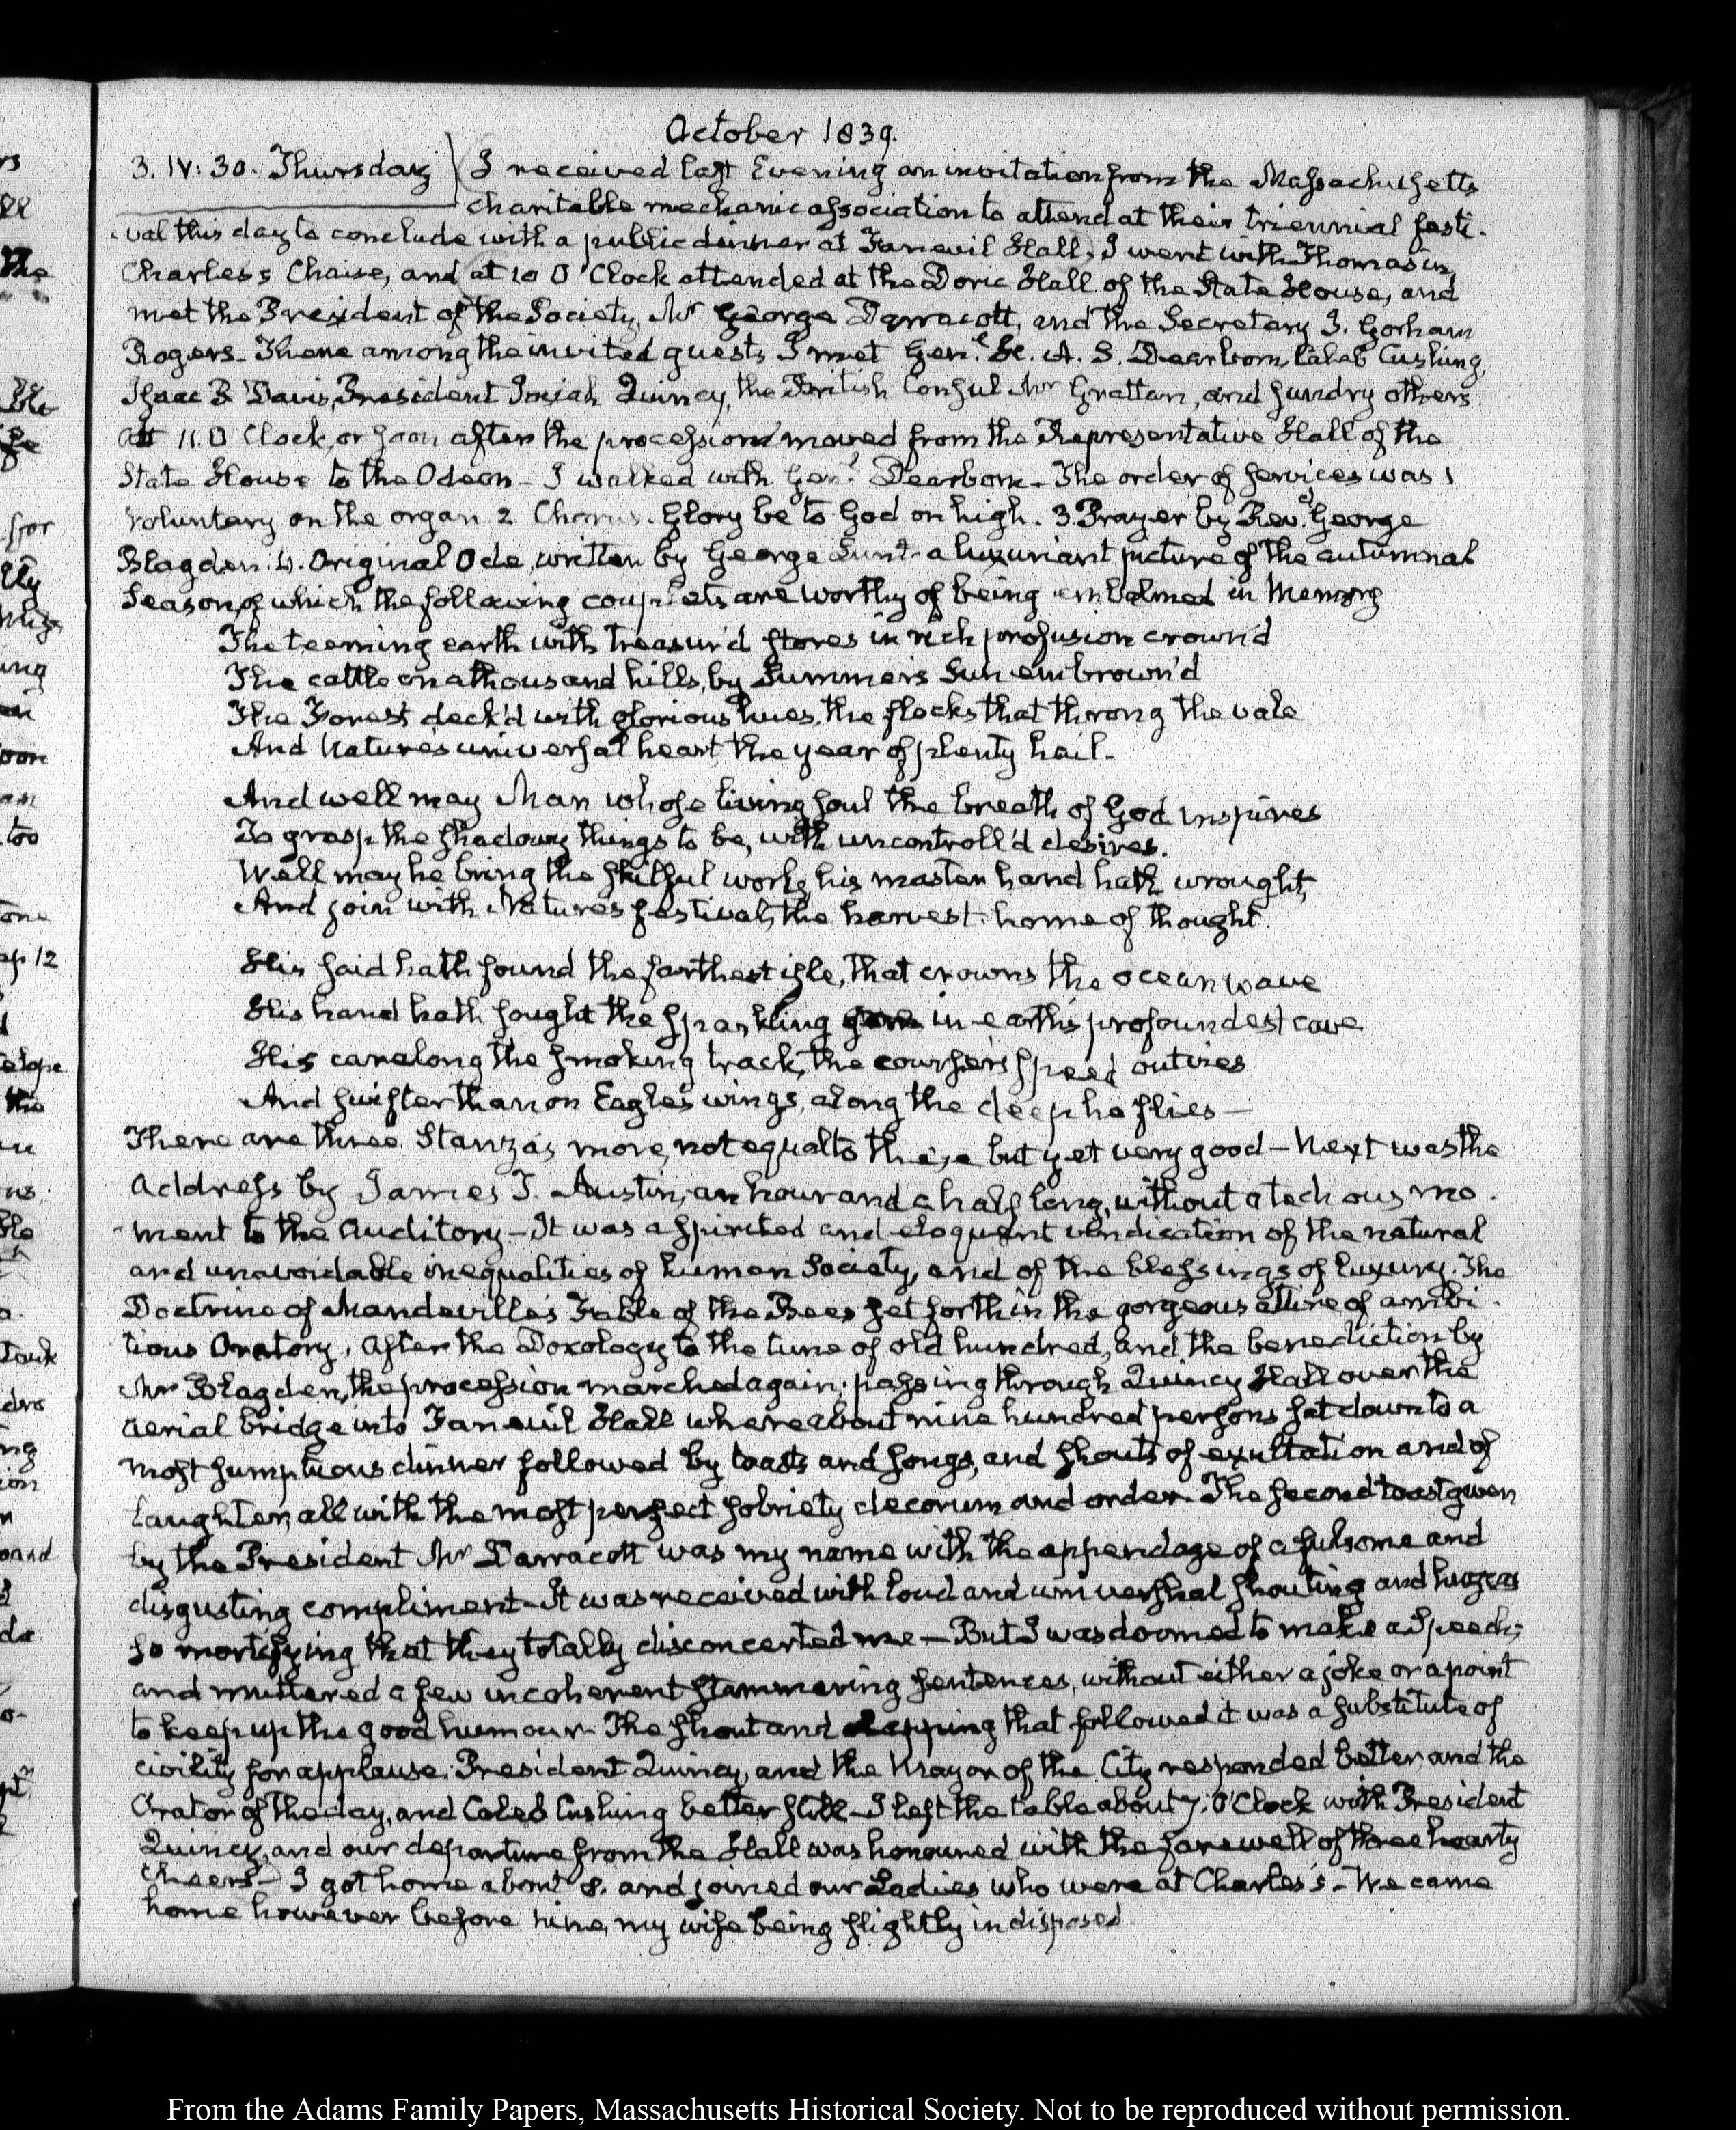 October 1839.
3. IV: 30. Thursday I received last Evening an invitation from the Massachusetts
charitable mechanic association to attend at their triennial festi-
val this day to conclude with a public dinner at Faneuil Hall. I went with Thomas in
Charles's Chaise, and at 10 O'Clock attended at the Doric Hall of the State House, and
met the President of the Society, Mr George Darracott, and the Secretary J. Gorham
Rogers. There among the invited guests I met Genl. H. A. S. Dearborn, Caleb Cushing,
Isaac P Davis, President Josiah Quincy, the British Consul Mr Grattan, and sundry others.
At 11. O'Clock, or soon after the procession moved from the Representative Hall of the
State House to the Odeon – I walked with Genl. Dearborn – The order of services was 1
Voluntary on the organ. 2. Chorus. Glory be to God on high. 3. Prayer by Revd. George
Blagden. 4. Original Ode, written by George Lunt. a luxuriant picture of the autumnal
Season, of which the following couplets are worthy of being embalmed in Memory
The teeming earth with treasur'd stores in rich profusion crown'd
The cattle on a thousand hills, by Summer's Sun embrown'd
The Forest deck'd with glorious hues, the flocks that throng the vale
And Nature's universal heart the year of plenty hail.
And well may Man whose living soul the breath of God inspires
To grasp the shadowy things to be, with uncontroll'd desires.
Well may he bring the skilful works his master hand hath wrought,
And join with Nature's festival, the harvest-home of thought.
His said hath found the farthest isle, that crowns the ocean wave
His hand hath sought the sparkling gem in earth's profoundest cave
His car along the smoking track, the courser's speed outvies
And swifter than on Eagle's wings, along the deep he flies –
There are three Stanzas more, not equal to these but yet very good – Next was the
Address by James T. Austin, an hour and a half long, without a tedious mo-
ment to the Auditory – It was a spirited and eloquent vindication of the natural
and unavoidable inequalities of human Society, and of the blessings of luxury. The
Doctrine of Mandeville's Fable of the Bees set forth in the gorgeous attire of ambi-
tious Oratory. After the Doxology to the tune of old hundred, and the benediction by
Mr Blagden, the procession marched again; passing through Quincy Hall over the
aerial bridge into Faneuil Hall where about nine hundred persons sat down to a
most sumptuous dinner followed by toasts and songs, and shouts of exultation and of
laughter, all with the most perfect sobriety decorum and order. The second toast given
by the President Mr Darracott was my name with the appendage of a fulsome and
disgusting compliment – It was received with loud and universal shouting and huzzas
so mortifying that they totally disconcerted me – But I was doomed to make a Speech;
and muttered a few incoherent stammering sentences, without either a joke or a point
to keep up the good humour. The shout and clapping that followed it was a substitute of
civility for applause. President Quincy, and the Mayor of the City responded better, and the
Orator of the day, and Caleb Cushing better still – I left the table about 7. O'Clock with President
Quincy, and our departure from the Hall was honoured with the farewell of three hearty
cheers – I got home about 8. and joined our Ladies who were at Charles's – We came
home however before nine, my wife being slightly indisposed.
From the Adams Family Papers, Massachusetts Historical Society. Not to be reproduced without permission.